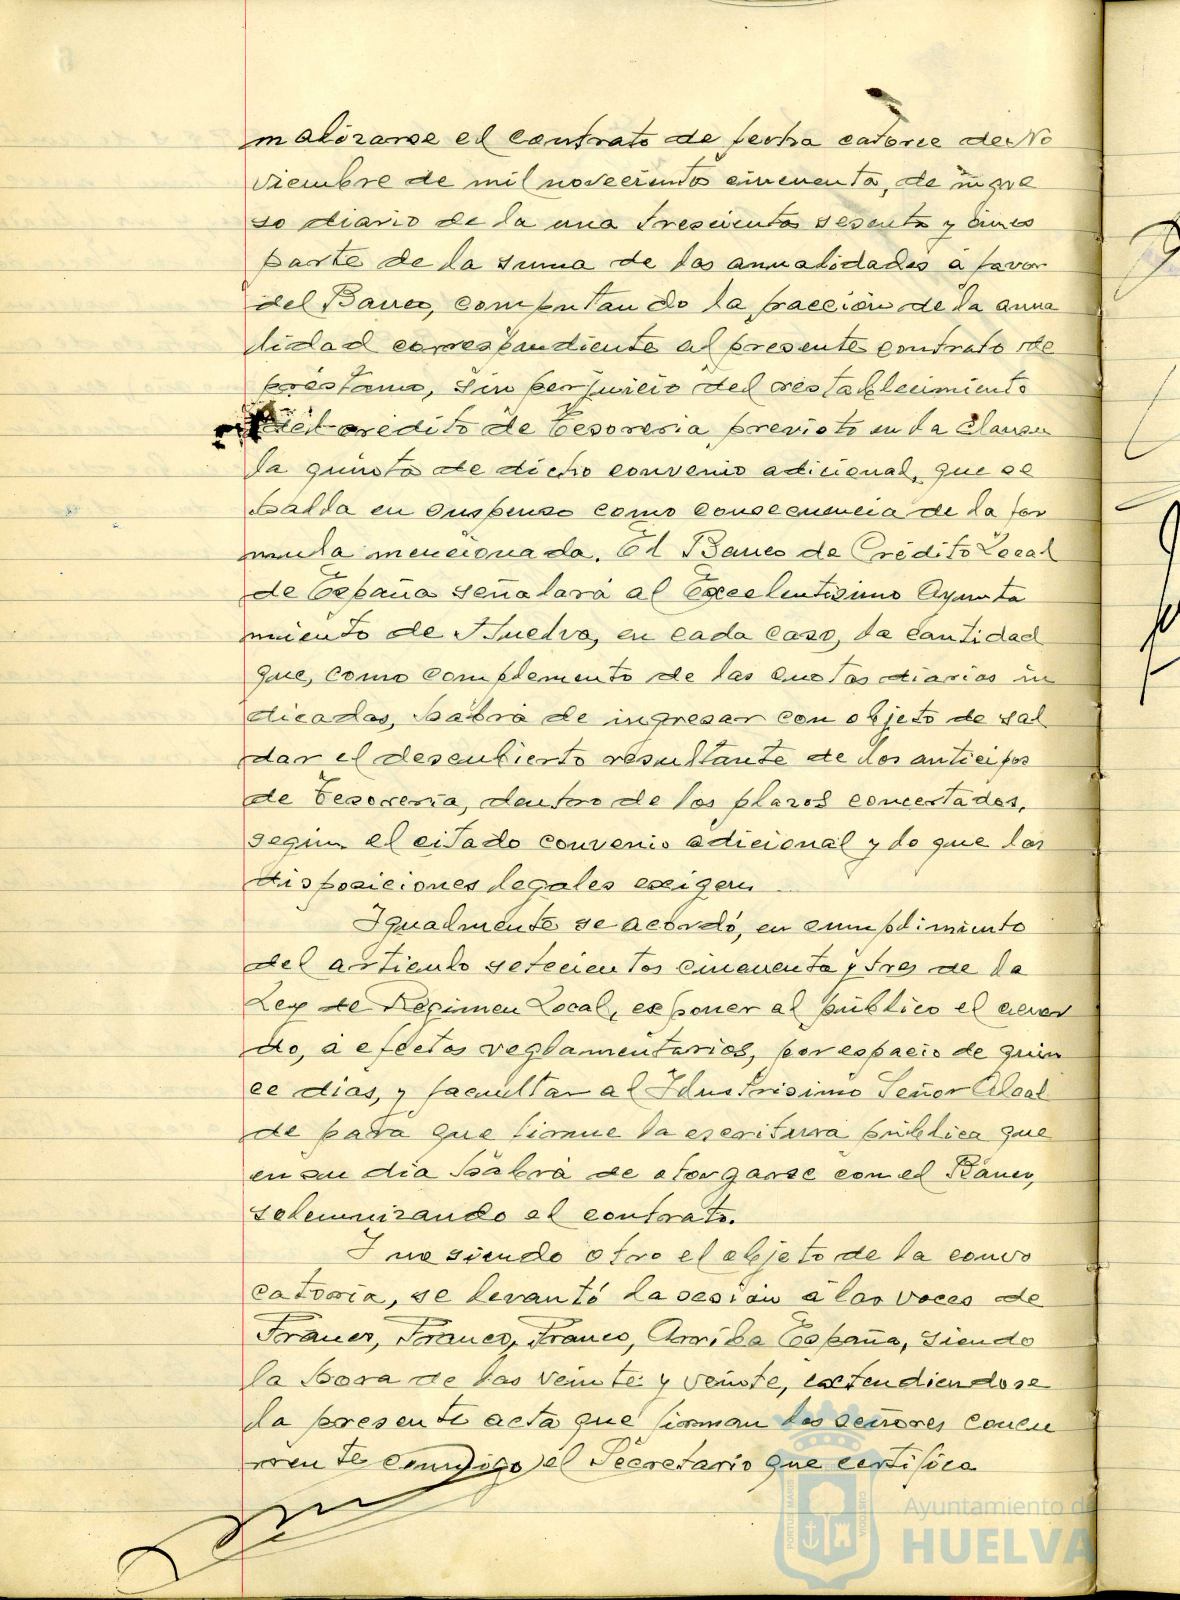 malizarse el contrato de fecha catorce de No
viembre de mil novecientos cincuenta, de ingre
so diario de la una trescientos sesenta y cinco
parte de la suma de las anualidades a favor
del Banco, computando la fracción de la anua
lidad correspondiente al presente contrato de
préstamo, sin perjuicio del restablecimiento
del crédito de Tesoreria previsto en la clausu
la quinta de dicho convenio adicional, que se
halla en suspenso como consecuencia de la for
mula mencionada. El Banco de Crédito Local
de España señalará al Excelentisimo Ayunta
miento de Huelva, en cada caso, la cantidad
que, como complemento de las cuotas diarias in
dicadas, habrá de ingresar con objeto de sal
dar el descubierto resultante de los anticipos
de Tesoreria, dentro de los plazos concertados,
según el citado convenio adicional y lo que las
disposiciones legales exigen.
Igualmente se acordó, en cumplimiento
del articulo setecientos cincuenta y tres de la
Ley de Régimen Local, exponer al público el acuer
do, a efectos reglamentarios, por espacio de quin
ce dias, y facultar al Ilustrisimo Señor Alcal
de para que firme la escritura pública que
en su dia habrá de otorgarse con el Banco,
solemnizando el contrato.
Y no siendo otro el objeto de la convo
catoria, se levantó la sesión a las voces de
Franco, Franco, Franco, Arriba España, siendo
la hora de las veinte y veinte, extendiendose
la presente acta que firman los señores concu
rrente conmigo el Secretario que certifica
Ayuntamiento de
HUELVA
PORTUS MARIS
CUSTODIA